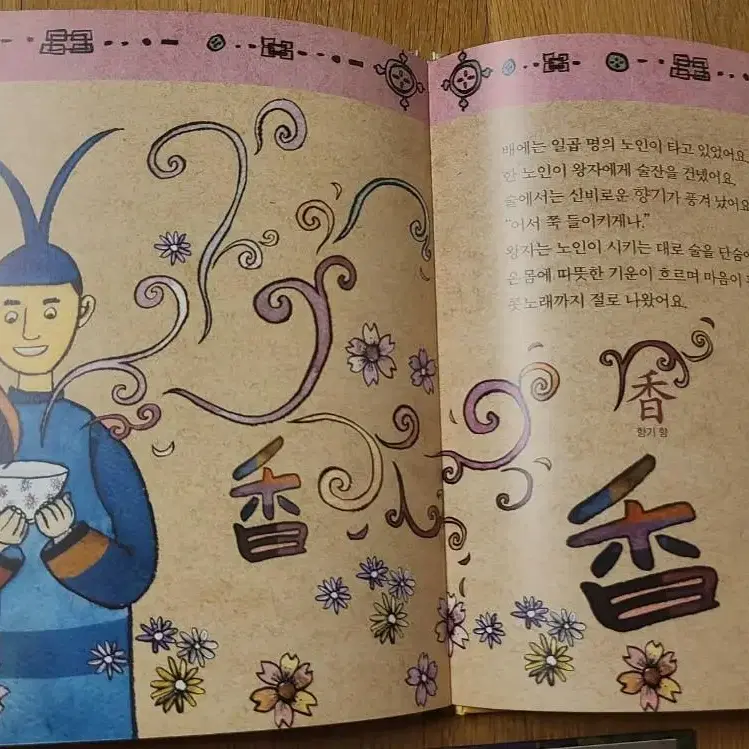 香
배에는 일곱 명의 노인이 타고 있었어요.
한 노인이 왕자에게 술잔을 건넸어요.
술에서는 신비로운 향기가 풍겨 났어요
"어서 쭉 들이키게나."
왕자는 노인이 시키는 대로 술을 단숨에
온몸에 따뜻한 기운이 흐르며 마음이
콧노래까지 절로 나왔어요.
香
향기 향
香